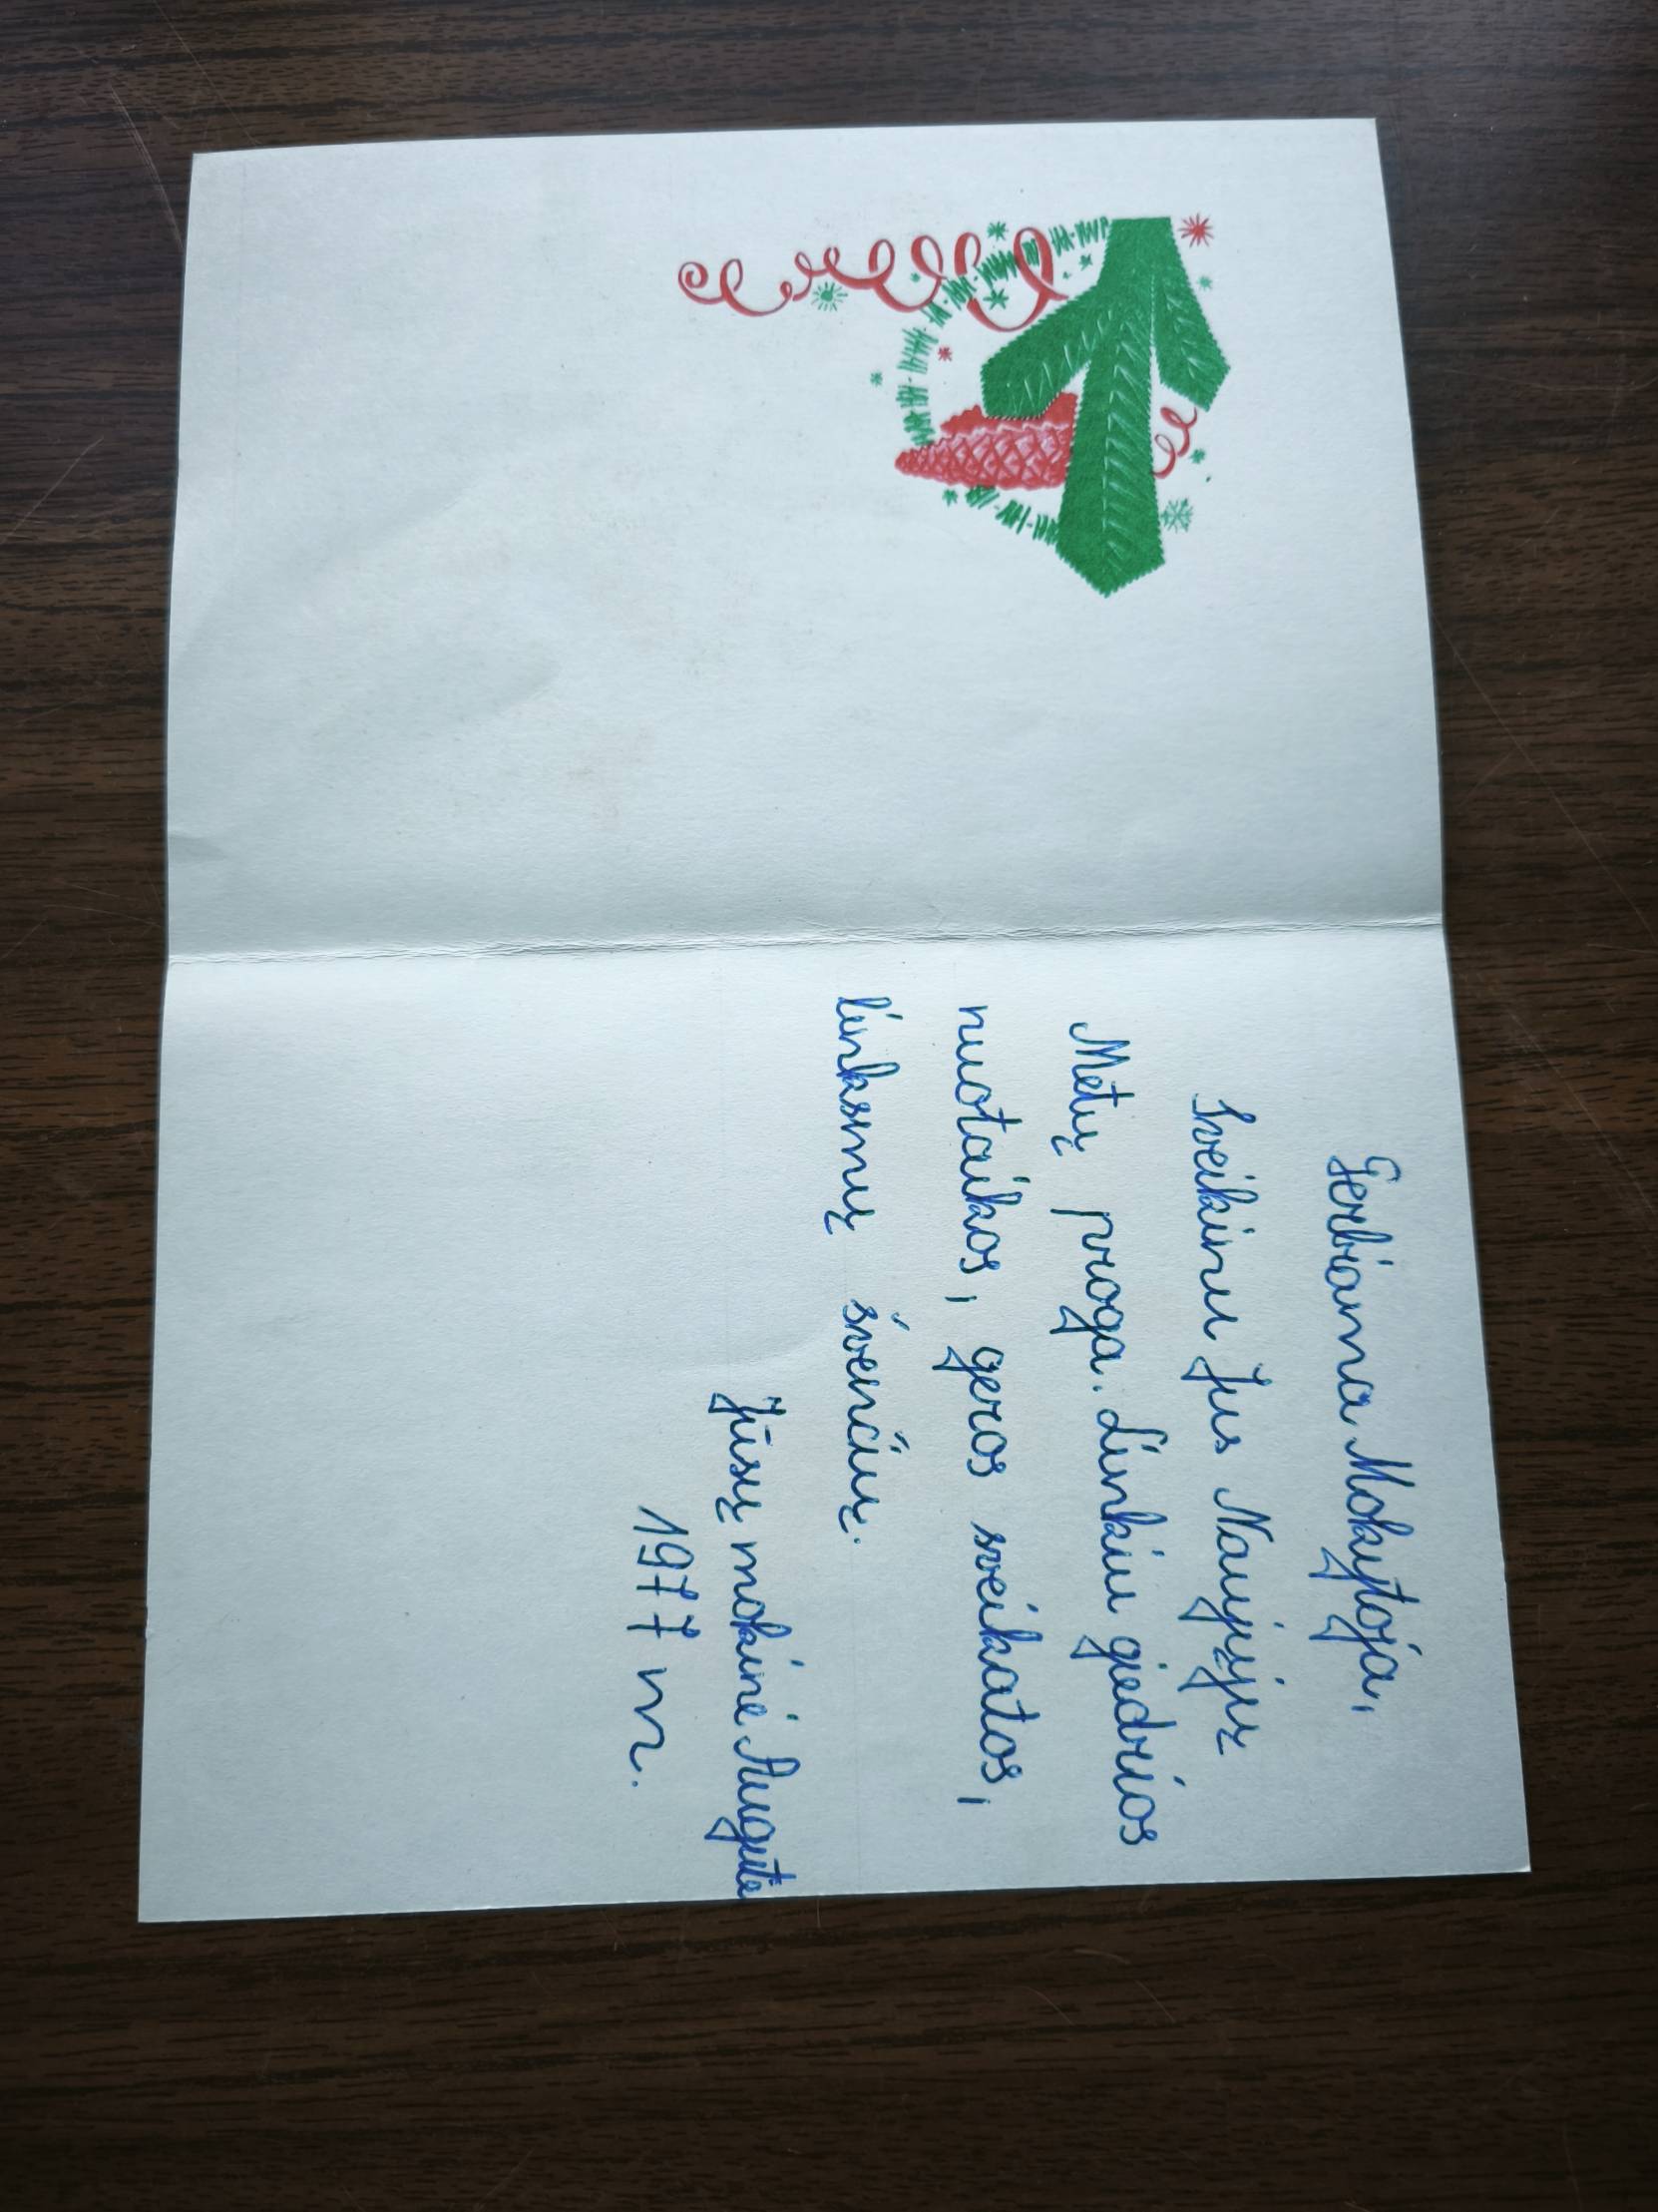 Gerbiama Mokytoja,
Sveikinu Jus Naujųjų
Metų proga. Linkiu giedrios
nuotaikos, geros sveikatos,
linksmų švenčių.
Jūsų mokinė Augutė
1977 m.